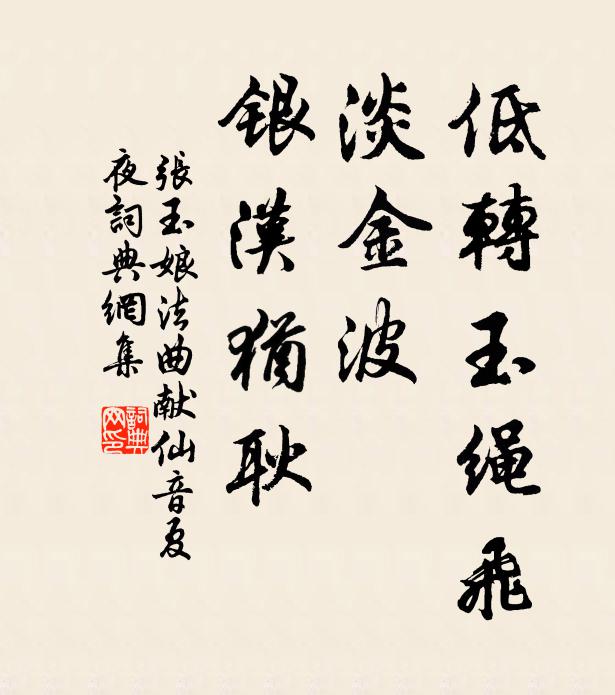 低轉玉绳飛
淡金波
銀漢猶耿
張玉娘法曲献仙音夏
夜詞典網集
詞典
网印